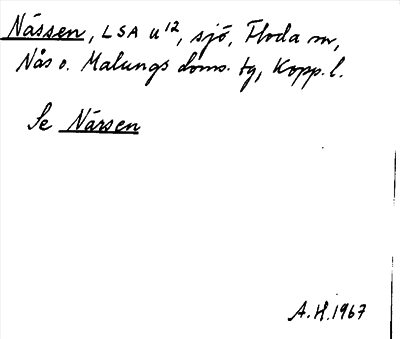 Nässen, LSA u¹², sjö, Floda sn,
Nås o. Malungs doms. tg, Kopp. l.
Se Närsen
A.H. 1967